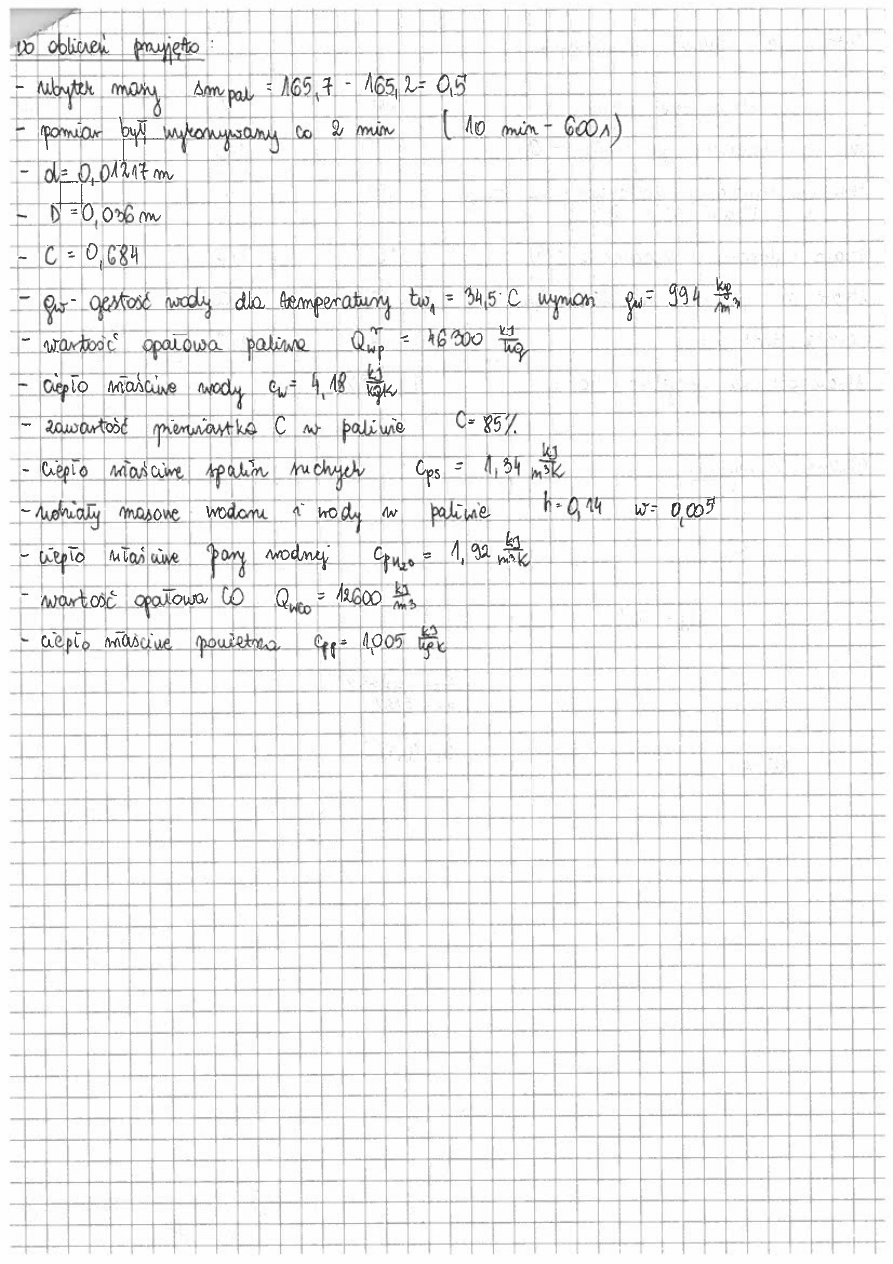 Do obliczeń przyjęto:
- ubytek masy Δm pal = 165,7 - 165,2 = 0,5
- pomiar był wykonywany co 2 min (10 min - 600s)
- d = 0,01217 m
- D = 0,036 m
- C = 0,684
- ρw - gęstość wody dla temperatury tw₁ = 34,5°C wynosi ρw = 994 kg/m³
- wartość opałowa paliwa Qʳwp = 46300 kJ/kg
- ciepło właściwe wody cw = 4,18 kJ/kgK
- zawartość pierwiastka C w paliwie C = 85%
- ciepło właściwe spalin suchych cps = 1,34 kJ/m³K
- udziały masowe wodoru i wody w paliwie h = 0,14 w = 0,005
- ciepło właściwe pary wodnej cpH₂O = 1,92 kJ/m³K
- wartość opałowa CO QwCO = 12600 kJ/m³
- ciepło właściwe powietrza cpp = 1,005 kJ/kgK